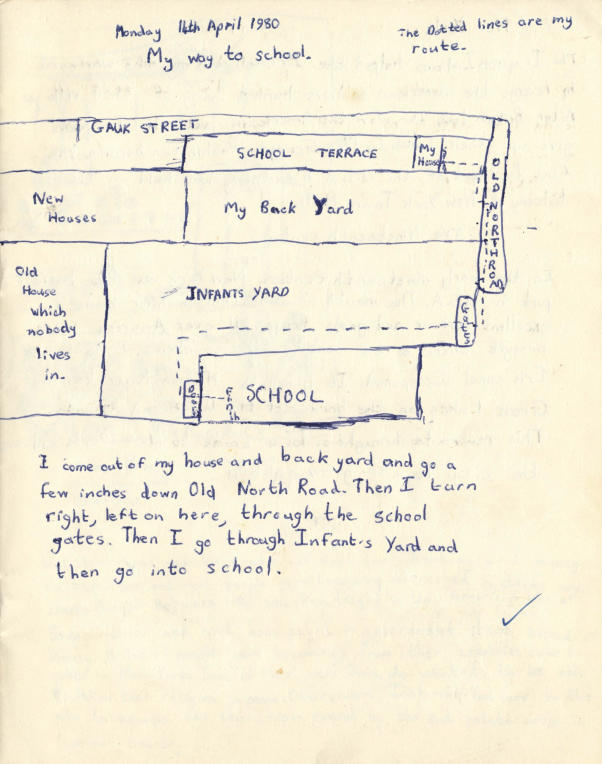 Monday 14th April 1980
The Dotted lines are my
route.
My way to school.
GAUK STREET
SCHOOL TERRACE
My
House
OLD NORTH ROAD
New
Houses
My Back Yard
Old
House
which
nobody
lives
in.
INFANTS YARD
Gates
Doors
Finish
SCHOOL
I come out of my house and back yard and go a
few inches down Old North Road. Then I turn
right, left on here, through the school
gates. Then I go through Infant's Yard and
then go into school.